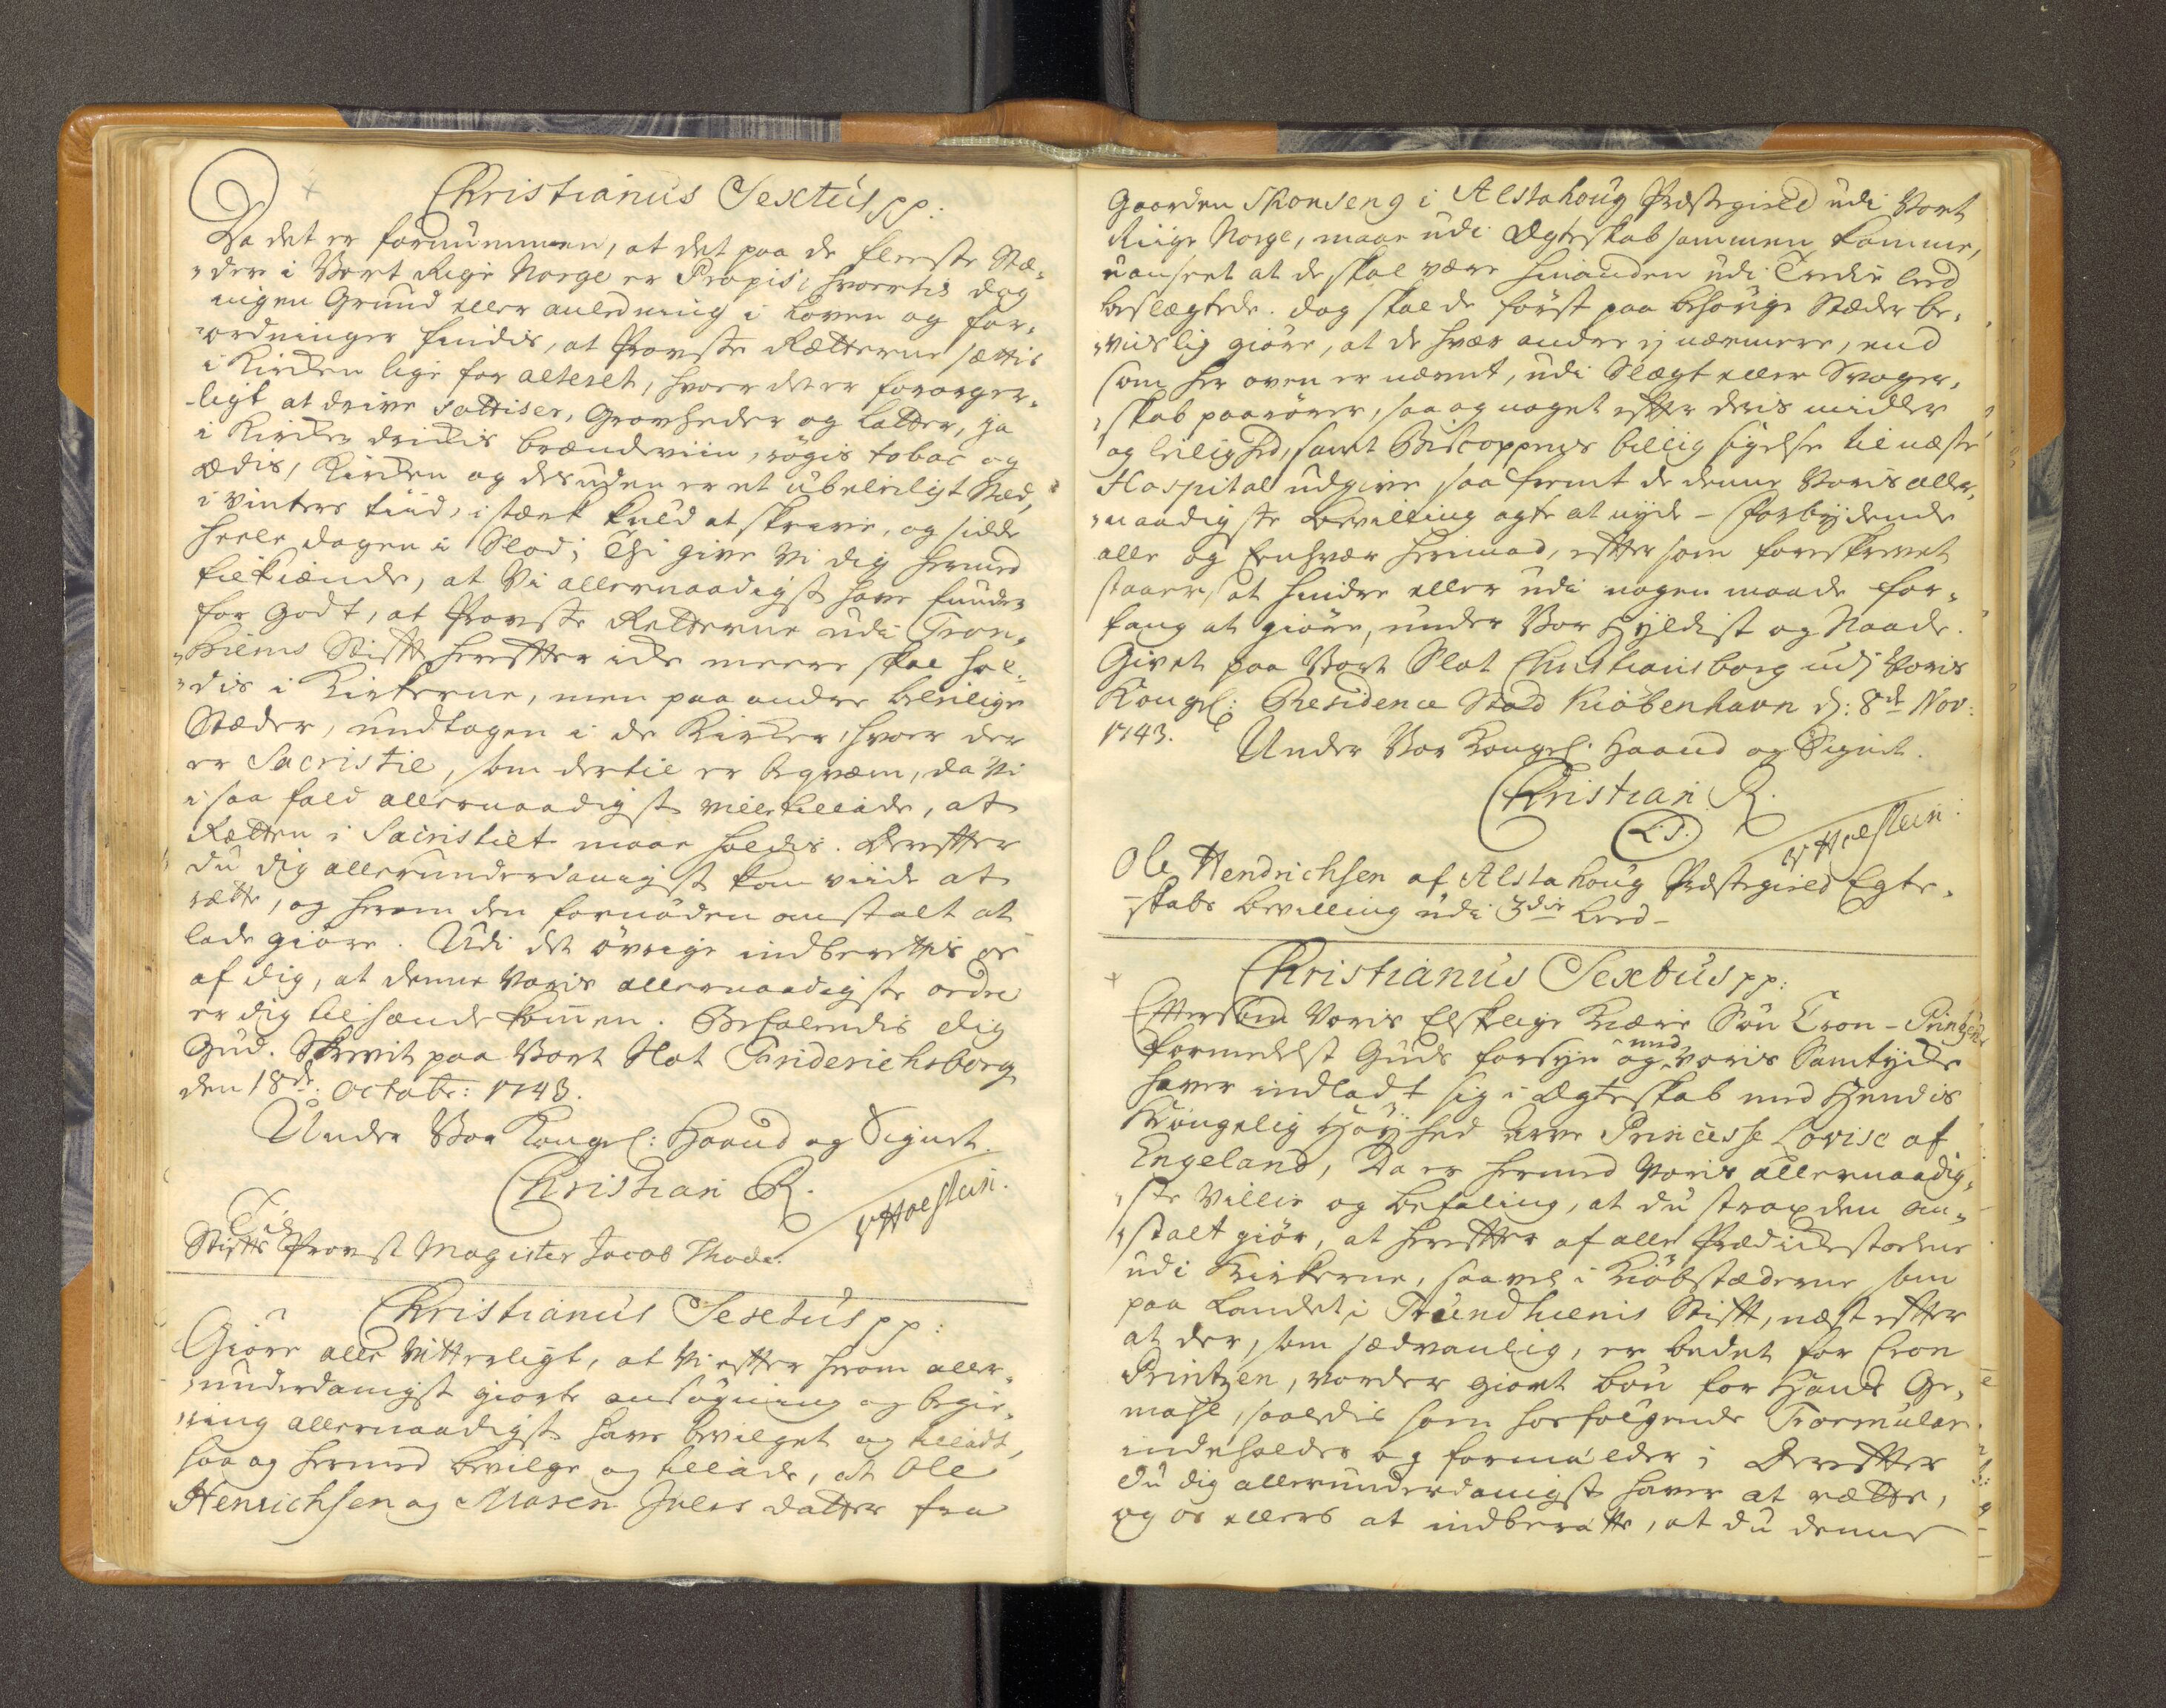 Christianus Sextus pp:
Da det er fornummen, at det paa de fleeste Stæ-
der i Vort Rige Norge er Praxis, hvortil dog
ingen Grund eller anledning i Loven og for-
ordninger findis, at Provste Rætterne sættis
i Kirken lige for alteret, hvor det er forarger-
ligt at drive sottiser, Grovheder og Latter, ja
i Kirken drikkis brændeviin, røgis tobac og
ædis, Kirken og desuden er et ubeleiligt Stæd,
i vinters tiid, i stærk kuld at skrive, og sidde
heele dagen i Slod; Thi give Vi dig hermed
tilkiende, at Vi allernaadigst have funden
for godt, at Provste Retterne udi Tron-
hiems Stift herefter icke meere skal hol-
dis i Kirkerne, men paa andre beleilige
Stæder, undtagen i de Kirker, hvor der
er Sacristie, som dertil er beqvem, da Vi
i saa fald allernaadigst ville tillade, at
Rætten i Sacristiet maae holdis. Derefter
du dig allerunderdanigst kan viide at
rætte, og herom den fornøden anstalt at
lade giøre. Udi det øvrige indberettis os
af dig, at denne Voris allernaadigste ordre
er dig tilhænde kommen. Befalendis dig
Gud. Skrevit paa Vort Slot Friderichsborg
den 18de octobr: 1743.
Under Vor Kongel: Haand og Signet.
Christian R.
v Holstein.
Til
Stifts Provst Magister Jacob Thode.
Christianus Sextus pp:
Giøre alle Vitterligt, at Vi efter herom aller-
underdanigst giorte ansøgning og begie-
ring allernaadigst have bevilget og tilladt,
saa og hermed bevilge og tillade, at Ole
Henrichsen og Maren Jules datter fra
Gaarden Skonseng i Alstahoug Præstegield udi Vort
Riige Norge, maae udi Ægteskab sammen komme,
uanseet at de skal være hinanden udi Tredie Leed
beslægtede. dog skal de først paa behørige Stæder be-
viislig giøre, at de hver andre ej nærmere, end
som her oven er nævnt, udi Slægt eller Svoger-
skab paarører, saa og noget efter deris midler
og leilighed, samt Biscoppens billig sigelse til næste
Hospital udgive saa fremt de denne Voris aller-
naadigste Bevilling agte at nyde - Forbydende
alle og Enhver herimod, efter som foreskrevet
staaer, at hindre eller udi nogen maade for-
fang at giøre, under Vor Hyldist og Naade.
Givet paa Vort Slot Christiansborg udj Voris
Kongel: Residence Stad Kiøbenhavn d: 8de Nov:
1743.
Under Vor Kongel. Haand og Signet.
Christian R.
L.S.
v Holstein.
Ole Hendrichsen af Alstahoug Præstegield Egte-
skabs bevilling udi 3die Leed -
Christianus Sextus pp:
Eftersom Voris Elskelige Kiære Søn Cron-Prinzen
formedelst Guds forsyn og med Voris Samtykke
haver indladt sig i Ægteskab med Hendis
Kongelig Høyhed Arve Princesse Lovise af
Engeland, Da er hermed Voris allernaadig-
ste Villie og befaling, at du strax den an-
stalt giør, at herefter af alle Prædickestolene
udi Kirkerne, saavel i Kiøbstæderne som
paa Landet i Trundhiems Stift, næst efter
at der, som sædvanlig, er bedet for Cron
Printzen, vorder giort bøn for Hands Ge-
mahl, saaledis som hosfølgende Formular
indeholder og formelder; Derefter
du dig allerunderdanigst haver at rætte,
og os ellers at indberætte, at du denne